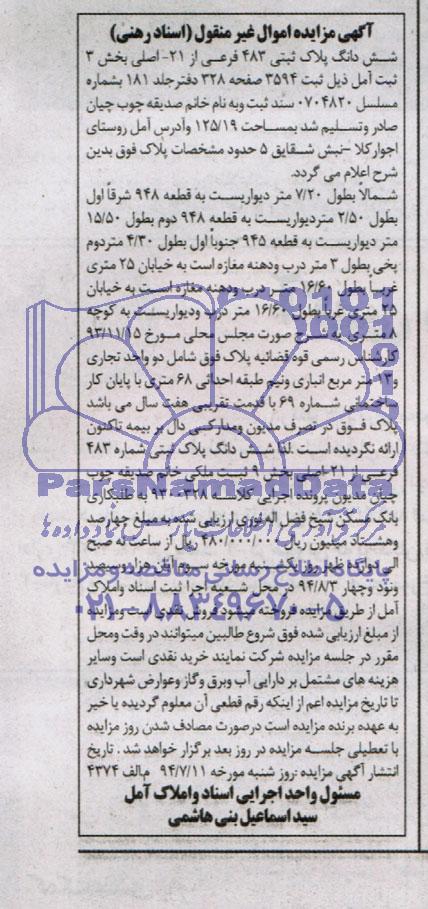 آگهی مزایده اموال غیر منقول (اسناد رهنی)
شش دانگ پلاک ثبتی ۴۸۳ فرعی از ۲۱- اصلی بخش ۳
ثبت آمل ذیل ثبت ۳۵۹۴ صفحه ۳۲۸ دفترجلد ۱۸۱ بشماره
مسلسل ۰۷۰۴۸۲۰ سند ثبت وبه نام خانم صدیقه چوب چیان
صادر وتسلیم شد بمساحت ۱۲۵/۱۹ وآدرس آمل روستای
اجوارکلا –نبش شقایق ۵ حدود مشخصات پلاک فوق بدین
شرح اعلام می گردد.
شمالاً بطول ۷/۲۰ متر دیواریست به قطعه ۹۴۸ شرقاً اول
بطول ۲/۵۰ متردیواریست به قطعه ۹۴۸ دوم بطول ۱۵/۵۰
متر دیواریست به قطعه ۹۴۵ جنوباً اول بطول ۴/۳۰ متردوم
پخی بطول ۳ متر درب ودهنه مغازه است به خیابان ۲۵ متری
غرباً بطول ۱۶/۶۰ متر درب ودهنه مغازه است به خیابان
۲۵ متری غرباً بطول ۱۶/۶۰ متر درب ودیواریست به کوچه
۸ متری به شرح صورت مجلس محلی مورخ ۹۳/۱۱/۱۵
کارشناس رسمی قوه قضائیه پلاک فوق شامل دو واحد تجاری
و۱۳ متر مربع انباری ونیم طبقه احداثی ۶۸ متری با پایان کار
ساختمانی شماره ۶۹ با قدمت تقریبی هفت سال می باشد
پلاک فوق در تصرف مدیون ومدارکی دال بر بیمه تاکنون
ارائه نگردیده است .لذا شش دانگ پلاک ثبتی شماره ۴۸۳
فرعی از ۲۱-اصلی بخش ۹ ثبت ملکی خانم صدیقه چوب
چیان مدیون پرونده اجرایی کلاسه ۹۳۰۰۳۲۸ به طلبکاری
بانک مسکن شیخ فضل اله نوری ارزیابی شده به مبلغ چهارصد
وهشتاد میلیون ریال ۴۸۰/۰۰۰/۰۰۰ ریال از ساعت نه صبح
الی دوازده ظهر روز یکشنبه مورخه سوم آبان هزاروسیصد
ونود وچهار ۹۴/۸/۳ در محل شعبه اجرا ثبت اسناد واملاک
آمل از طریق مزایده فروخته میشود فروش نقدی است ومزایده
از مبلغ ارزیابی شده فوق شروع طالبین میتوانند در وقت ومحل
مقرر در جلسه مزایده شرکت نمایند خرید نقدی است وسایر
هزینه های مشتمل بر دارایی آب وبرق وگاز وعوارض شهرداری
تا تاریخ مزایده اعم از اینکه رقم قطعی آن معلوم گردیده یا خیر
به عهده برنده مزایده است درصورت مصادف شدن روز مزایده
با تعطیلی جلسه مزایده در روز بعد برگزار خواهد شد . تاریخ
انتشار آگهی مزایده :روز شنبه مورخه ۹۴/۷/۱۱ م.الف ۴۳۷۴
مسئول واحد اجرایی اسناد واملاک آمل
سید اسماعیل بنی هاشمی
ParsNamadData
پایگاه اطلاع رسانی مناقصه و مزایده
۰۲۱-۸۸۳۴۹۶۷۰-۵